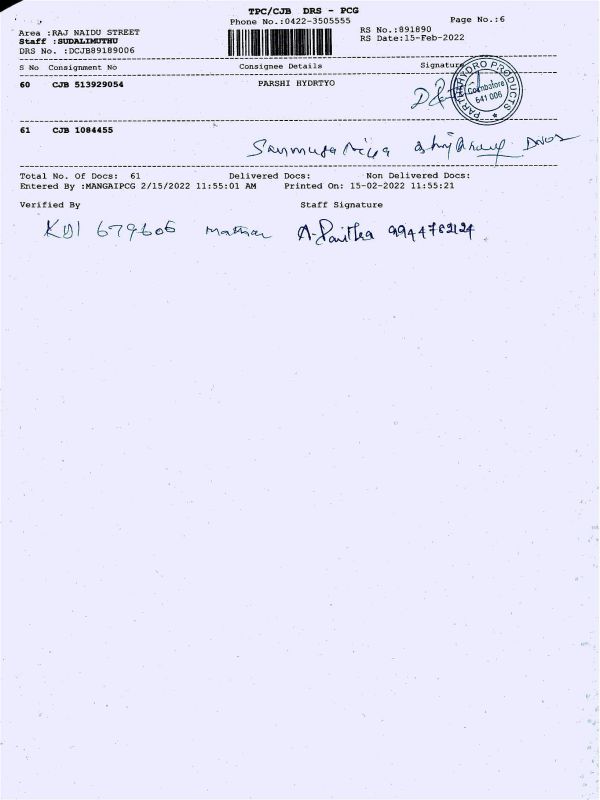 TPC/CJB DRS - PCG
Phone No.:0422-3505555
Page No.:6
Area :RAJ NAIDU STREET
RS No.:891890
Staff :SUDALIMUTHU
RS Date:15-Feb-2022
DRS No. :DCJB89189006
S No Consignment No Consignee Details Signature
60 CJB 513929054 PARSHI HYDRTYO
PARTH HYDRO PRODUCTS
Coimbatore
641 006
61 CJB 1084455
Total No. Of Docs: 61 Delivered Docs: Non Delivered Docs:
Entered By :MANGAIPCG 2/15/2022 11:55:01 AM Printed On: 15-02-2022 11:55:21
Verified By Staff Signature
KDI 679606 A. Pavitha 9944782124